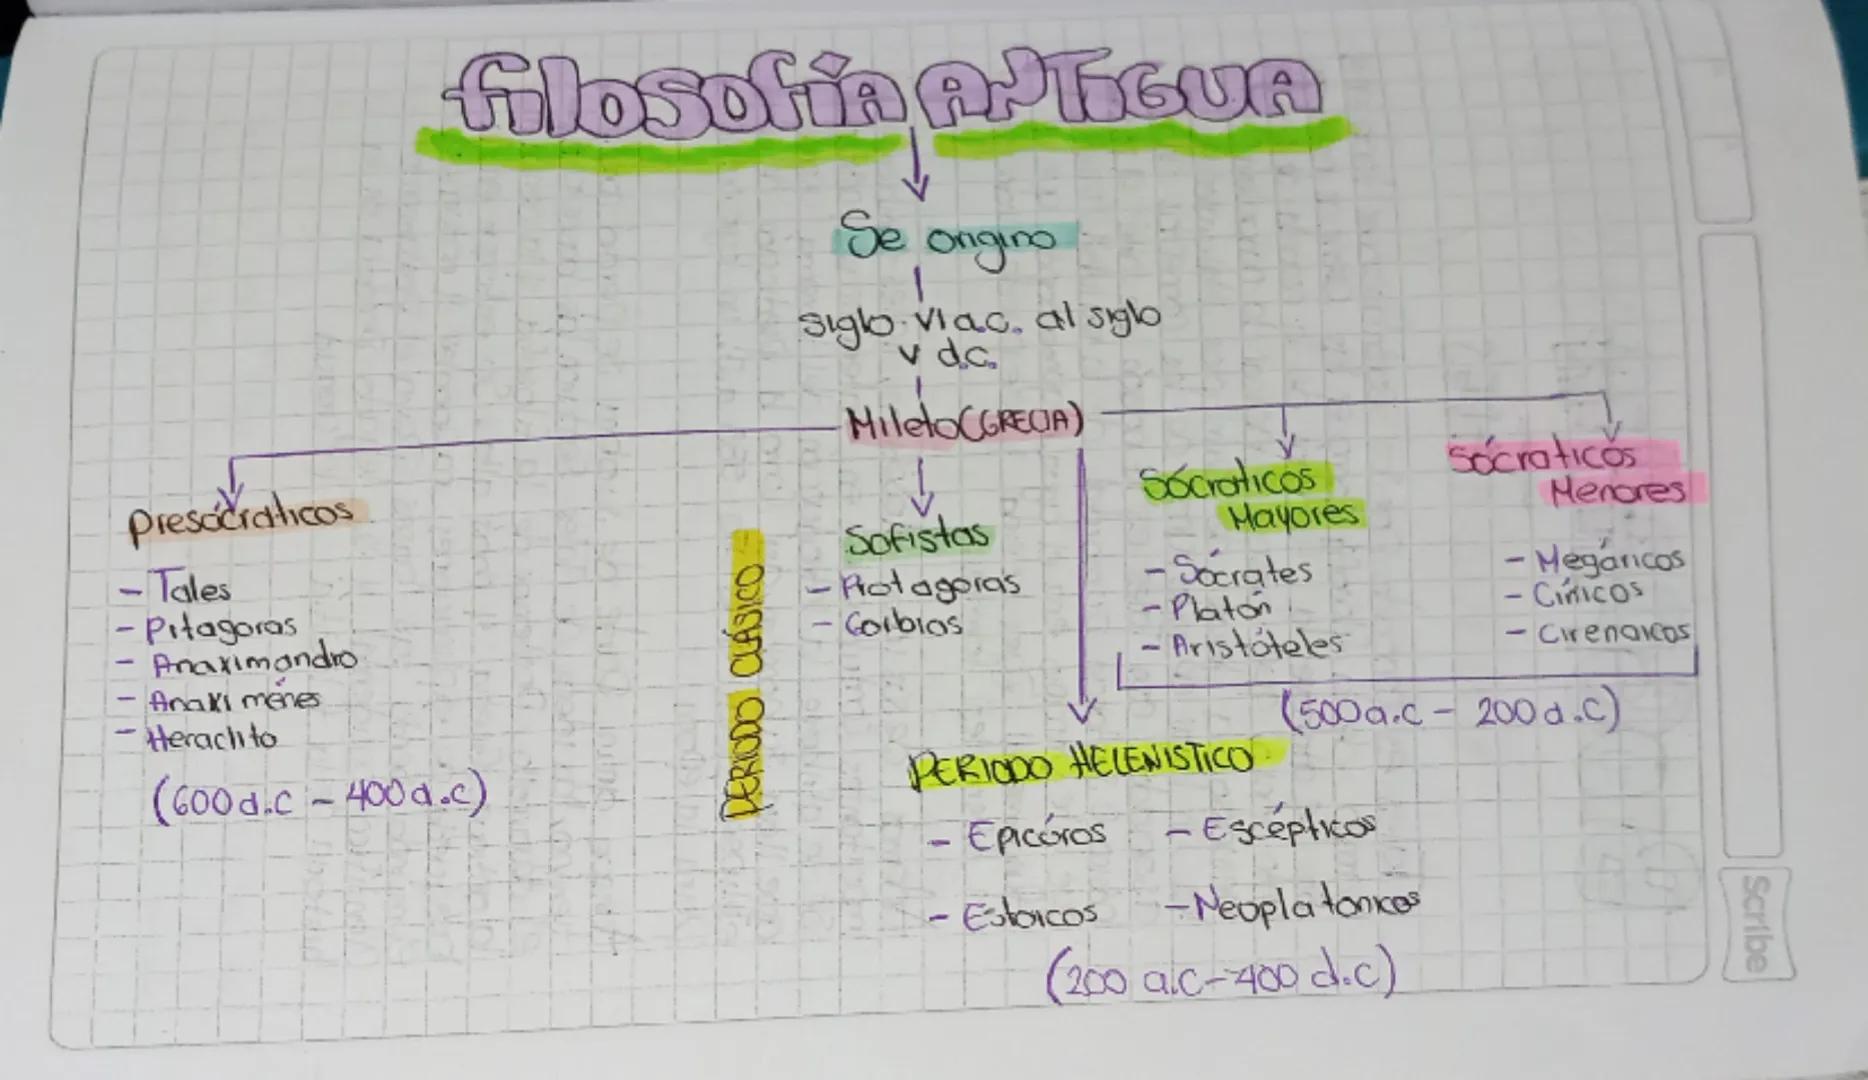 filosofía ANTIGUA
Se origino
siglo VI a.c. al siglo
V d.c.
Mileto (GRECIA)
Presócraticos
- Tales
- Pitagoras
- Anaximandro
- Anaxi menes
- Heraclito
(600 d.c - 400 a.c)
PERIODO CLÁSICO
Sofistas
- Protagoras
- Gorbias
Sócraticos
Mayores
- Sócrates
- Platón
- Aristóteles
Sócraticos
Menores
- Megáricos
- Cínicos
- Cirenaicos
(500 a.c - 200 d.c)
PERIODO HELENISTICO
- Epicúros - Escépticos
- Estoicos - Neoplatonicos
(200 a.c - 400 d.c)
Scribe